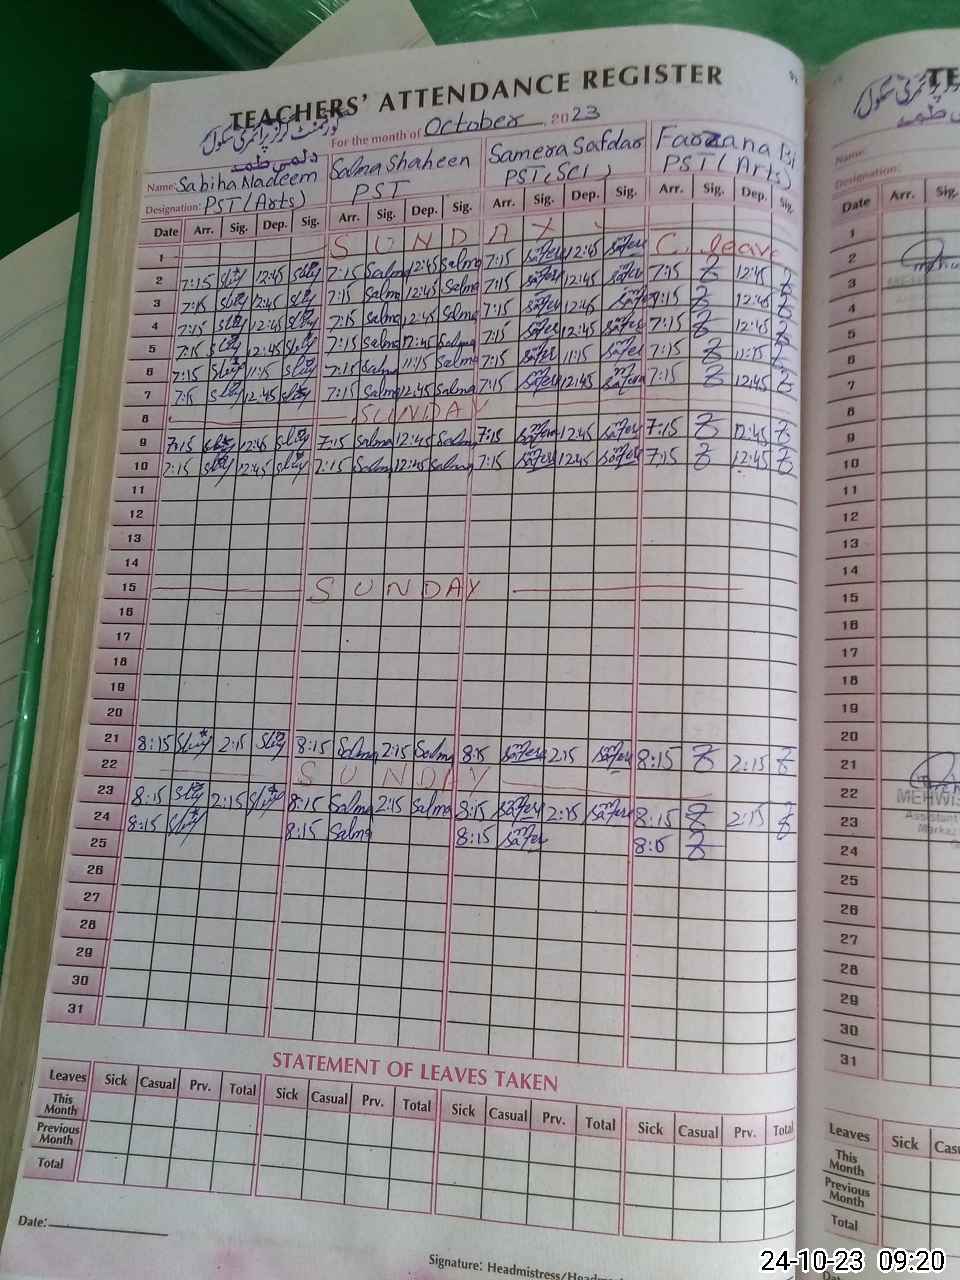 TEACHERS' ATTENDANCE REGISTER
گورنمنٹ گرلز پرائمری سکول
For the month of October 2023
Name: Sabiha Nadeem Salma Shaheen Samera Safdar Farzana Bi
Designation: PST (Arts) PST PST (Sci) PST (Arts)
Date Arr. Sig. Dep. Sig. Arr. Sig. Dep. Sig. Arr. Sig. Dep. Sig. Arr. Sig. Dep. Sig.
1 SUNDAY
2 7:15 12:45 7:15 Salma 12:45 Salma 7:15 12:45 C. leave
3 7:15 12:45 7:15 Salma 12:45 Salma 7:15 12:45 7:15 12:45
4 7:15 12:45 7:15 Salma 12:45 Salma 7:15 12:45 7:15 12:45
5 7:15 12:45 7:15 Salma 12:45 Salma 7:15 12:45 7:15 12:45
6 7:15 11:15 7:15 Salma 11:15 Salma 7:15 11:15 7:15 11:15
7 7:15 12:45 7:15 Salma 12:45 Salma 7:15 12:45 7:15 12:45
8 SUNDAY
9 7:15 12:45 7:15 Salma 12:45 Salma 7:15 12:45 7:15 12:45
10 7:15 12:45 7:15 Salma 12:45 Salma 7:15 12:45 7:15 12:45
11
12
13
14
15 SUNDAY
16
17
18
19
20
21 8:15 2:15 8:15 Salma 2:15 Salma 8:15 2:15 8:15 2:15
22 SUNDAY
23 8:15 2:15 8:15 Salma 2:15 Salma 8:15 2:15 8:15 2:15
24 8:15 8:15 Salma 8:15 8:15
25
26
27
28
29
30
31
STATEMENT OF LEAVES TAKEN
Leaves Sick Casual Prv. Total Sick Casual Prv. Total Sick Casual Prv. Total Sick Casual Prv. Total
This Month
Previous Month
Total
Date:
Signature: Headmistress/Head
TE
Name:
Designation:
Date Arr. Sig.
1
2
3
4
5
6
7
8
9
10
11
12
13
14
15
16
17
18
19
20
21
22 MEHWIS
23 Assistant
Marka
24
25
26
27
28
29
30
31
Leaves Sick Cas
This Month
Previous Month
Total
24-10-23 09:20